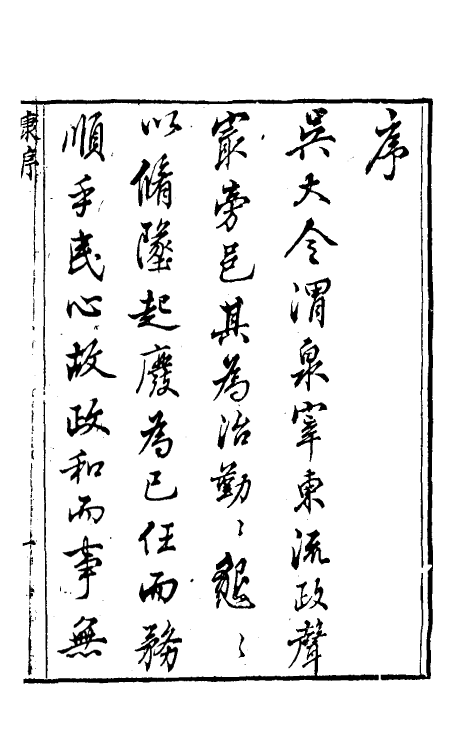 序
吳大令渭泉宰東流政聲
最旁邑其為治勤〻懇〻
以脩墜起廢為己任而務
順乎民心故政和而事無
康序
一